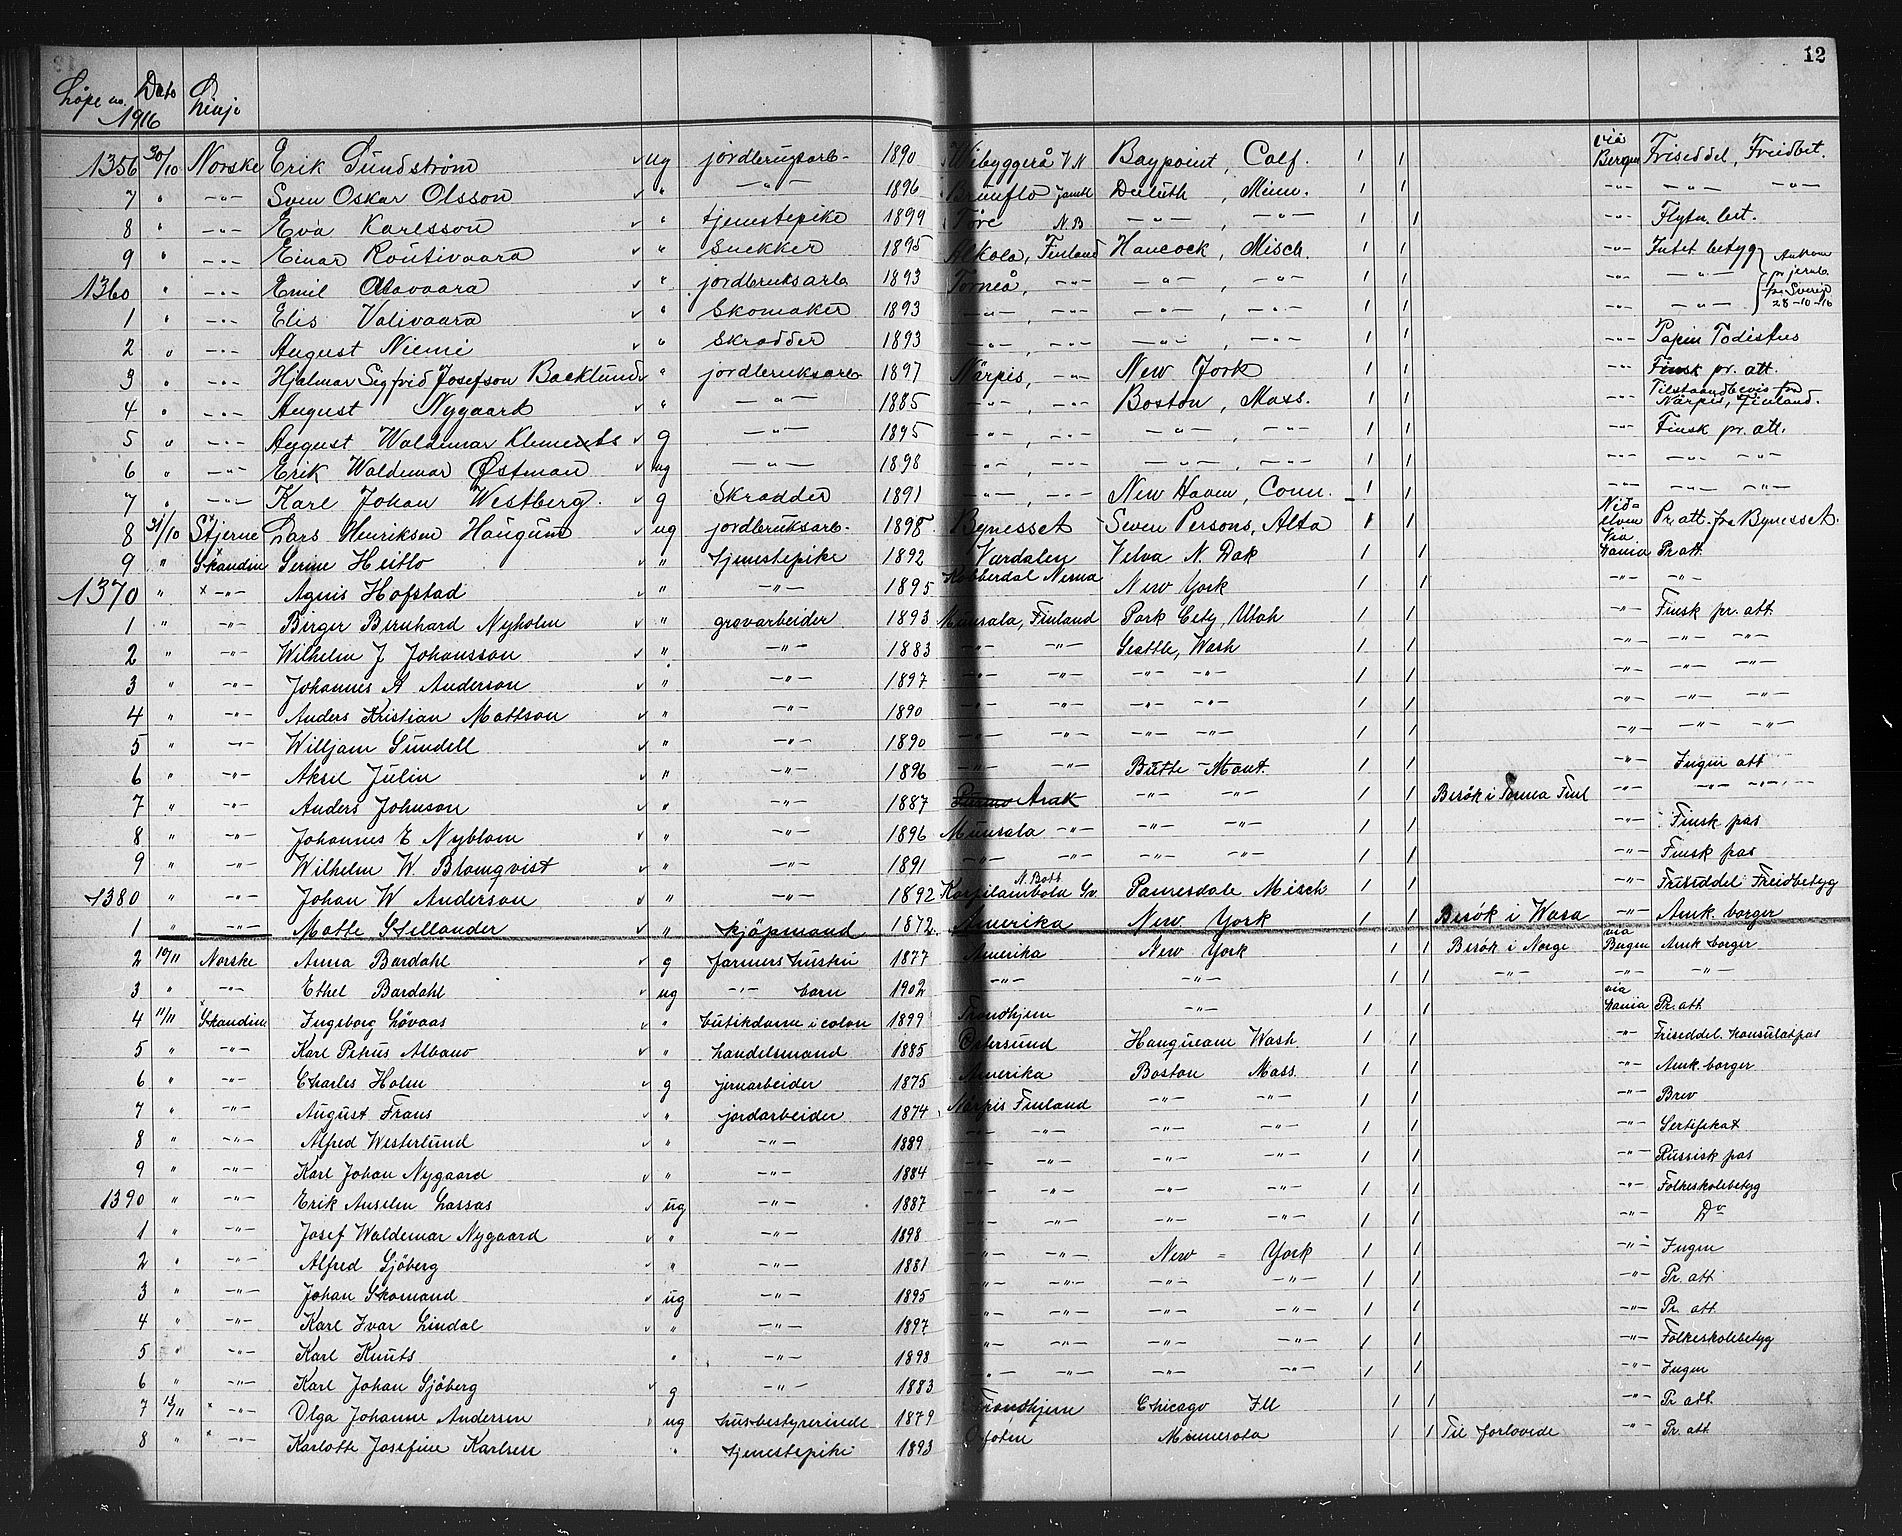 12
Løpe no. Dato 1916 Linje
1356 30/10 Norske Erik Sundström ug jordbrugsarb- 1890 Wibyggerå V.N Baypoint, Calf. 1 1 via Bergen Friseddel, Freidbet.
7 " -"- Sven Oskar Olsson " -"- 1896 Brunflo Jamtl Duluth, Minn. 1 1 -"- -"- -"-
8 " -"- Eva Karlsson " tjenestepike 1899 Töre N.B -"-, -"- 1 1 -"- Flyttn. bet.
9 " -"- Einar Routivaara " Snekker 1895 Alkola, Finland Hancock, Misch. 1 1 -"- Intet betyg
1360 " -"- Emil Alavaara " jordbruksarb 1893 Torneå, -"- -"-, -"- 1 1 -"- -"- Ankom pr jernb. fra Sverige 28-10-16
1 " -"- Elis Valivaara " Skomaker 1893 -"-, -"- -"-, -"- 1 1 -"- -"-
2 " -"- August Niemi " Skrædder 1893 -"-, -"- -"-, -"- 1 1 -"- Papin Todistus
3 " -"- Hjalmar Sigfrid Josefson Backlund " jordbruksarb 1897 Närpis, -"- New York 1 1 -"- Finsk pr. att.
4 " -"- August Nygaard " -"- 1885 -"-, -"- Boston, Mass. 1 1 -"- Tilstaandbevis fra Närpis, Finland.
5 " -"- August Waldemar Klements g -"- 1895 -"-, -"- -"-, -"- 1 1 -"- Finsk pr. att.
6 " -"- Erik Waldemar Östman ug -"- 1898 -"-, -"- -"-, -"- 1 1 -"- -"- -"-
7 " -"- Karl Johan Westberg. g Skrædder 1891 -"-, -"- New Haven, Conn. 1 1 -"- -"- -"-
8 31/10 Stjerne Lars Henriksen Haugum ug jordbruksarb- 1898 Bynesset Seven Persons, Alta 1 1 Nidelven Pr. att. fra Bynesset.
9 " Skandin Serine Heitlo " tjenestepike 1892 Værdalen Velva N. Dak 1 1 Via Xania Pr att
1370 " x -"- Agnis Hofstad " -"- 1895 Kobberdal Nesna New York 1 1 -"- -"-
1 " -"- Birger Bernhard Nyholm " gravarbeider 1893 Munsala, Finland Park City, Utah 1 1 -"- Finsk pr. att
2 " -"- Wilhelm J Johansson " -"- 1883 -"- -"- Seattle, Wash 1 1 -"- -"- -"-
3 " -"- Johannes A Anderson " -"- 1897 -"- -"- -"- -"- 1 1 -"- -"- -"-
4 " -"- Anders Kristian Mattson " -"- 1890 -"- -"- -"- -"- 1 1 -"- -"- -"-
5 " -"- Williham Sundell " -"- 1890 -"- -"- -"- -"- 1 1 -"- -"- -"-
6 " -"- Aksel Julin " -"- 1896 -"- -"- Butte - Mont. 1 1 -"- Ingen att
7 " -"- Anders Johnson " -"- 1887 Arak -"- -"- 1 1 Besök i Finl -"- -"- -"-
8 " -"- Johannes E Nyblom " -"- 1896 Munsala -"- -"- -"- 1 1 -"- Finsk pas
9 " -"- Wilhelm W. Blomqvist " -"- 1891 -"- -"- -"- -"- 1 1 -"- Finsk pas
1380 " -"- Johan W Anderson " -"- 1892 N. Bott Painesdale Misch 1 1 -"- Friseddel Freidbetyg
1 " -"- Matte Stellander " kjøpmand 1872 Amerika New York 1 1 Besök i Wasa -"- Amk. borger
2 10/11 Norske Anna Bardahl g farmers hustru 1877 Amerika New York 1 1 Besök i Norge via Bergen Amk borger
3 " -"- Ethel Bardahl ug -"- barn 1902 -"- -"- 1 1 -"- -"- -"-
4 11/11 x Skandin Ingeborg Lövaas " butikdame i colon 1899 Trondhjem -"- 1 1 via Xania Pr. att
5 " -"- Karl Petrus Albano " handelsmand 1885 Östersund Hanqueam Wash 1 1 -"- Friseddel Konsulatpas
6 " -"- Charles Holm g jernarbeider 1875 Amerika Boston Mass. 1 1 -"- Amk. borger
7 " -"- August Frans " jordarbeider 1874 Närpis Finland -"- -"- 1 1 -"- Brev
8 " -"- Alfred Westerlund " -"- 1889 -"- -"- -"- -"- 1 1 -"- Sertifikat
9 " -"- Karl Johan Nygaard " -"- 1884 -"- -"- -"- 1 1 -"- Russisk pas
1390 " -"- Erik Anselm Lassas ug -"- 1887 -"- -"- -"- -"- 1 1 -"- Folkeskolebetyg
1 " -"- Josef Waldemar Nygaard " -"- 1898 -"- -"- -"- -"- 1 1 -"- Do
2 " -"- Alfred Sjöberg " -"- 1881 -"- -"- New = York 1 1 -"- Ingen
3 " -"- Johan Skomand ug -"- 1895 -"- -"- -"- -"- 1 1 -"- Pr. att
4 " -"- Karl Ivar Lindal " -"- 1897 -"- -"- -"- -"- 1 1 -"- Pr. att
5 " -"- Karl Knuts " -"- 1898 -"- -"- -"- -"- 1 1 -"- Folkeskolebetyg
6 " -"- Karl Johan Sjöberg g -"- 1883 -"- -"- -"- -"- 1 1 -"- Ingen
7 13/11 x -"- Olga Johanne Andersen ug husbestyrerinde 1879 Trondhjem Chicago Ill 1 1 -"- Pr att
8 " x -"- Karlotte Josefine Karlsen " tjenestepike 1893 Minnesota 1 1 Til forlovede -"- Pr. att